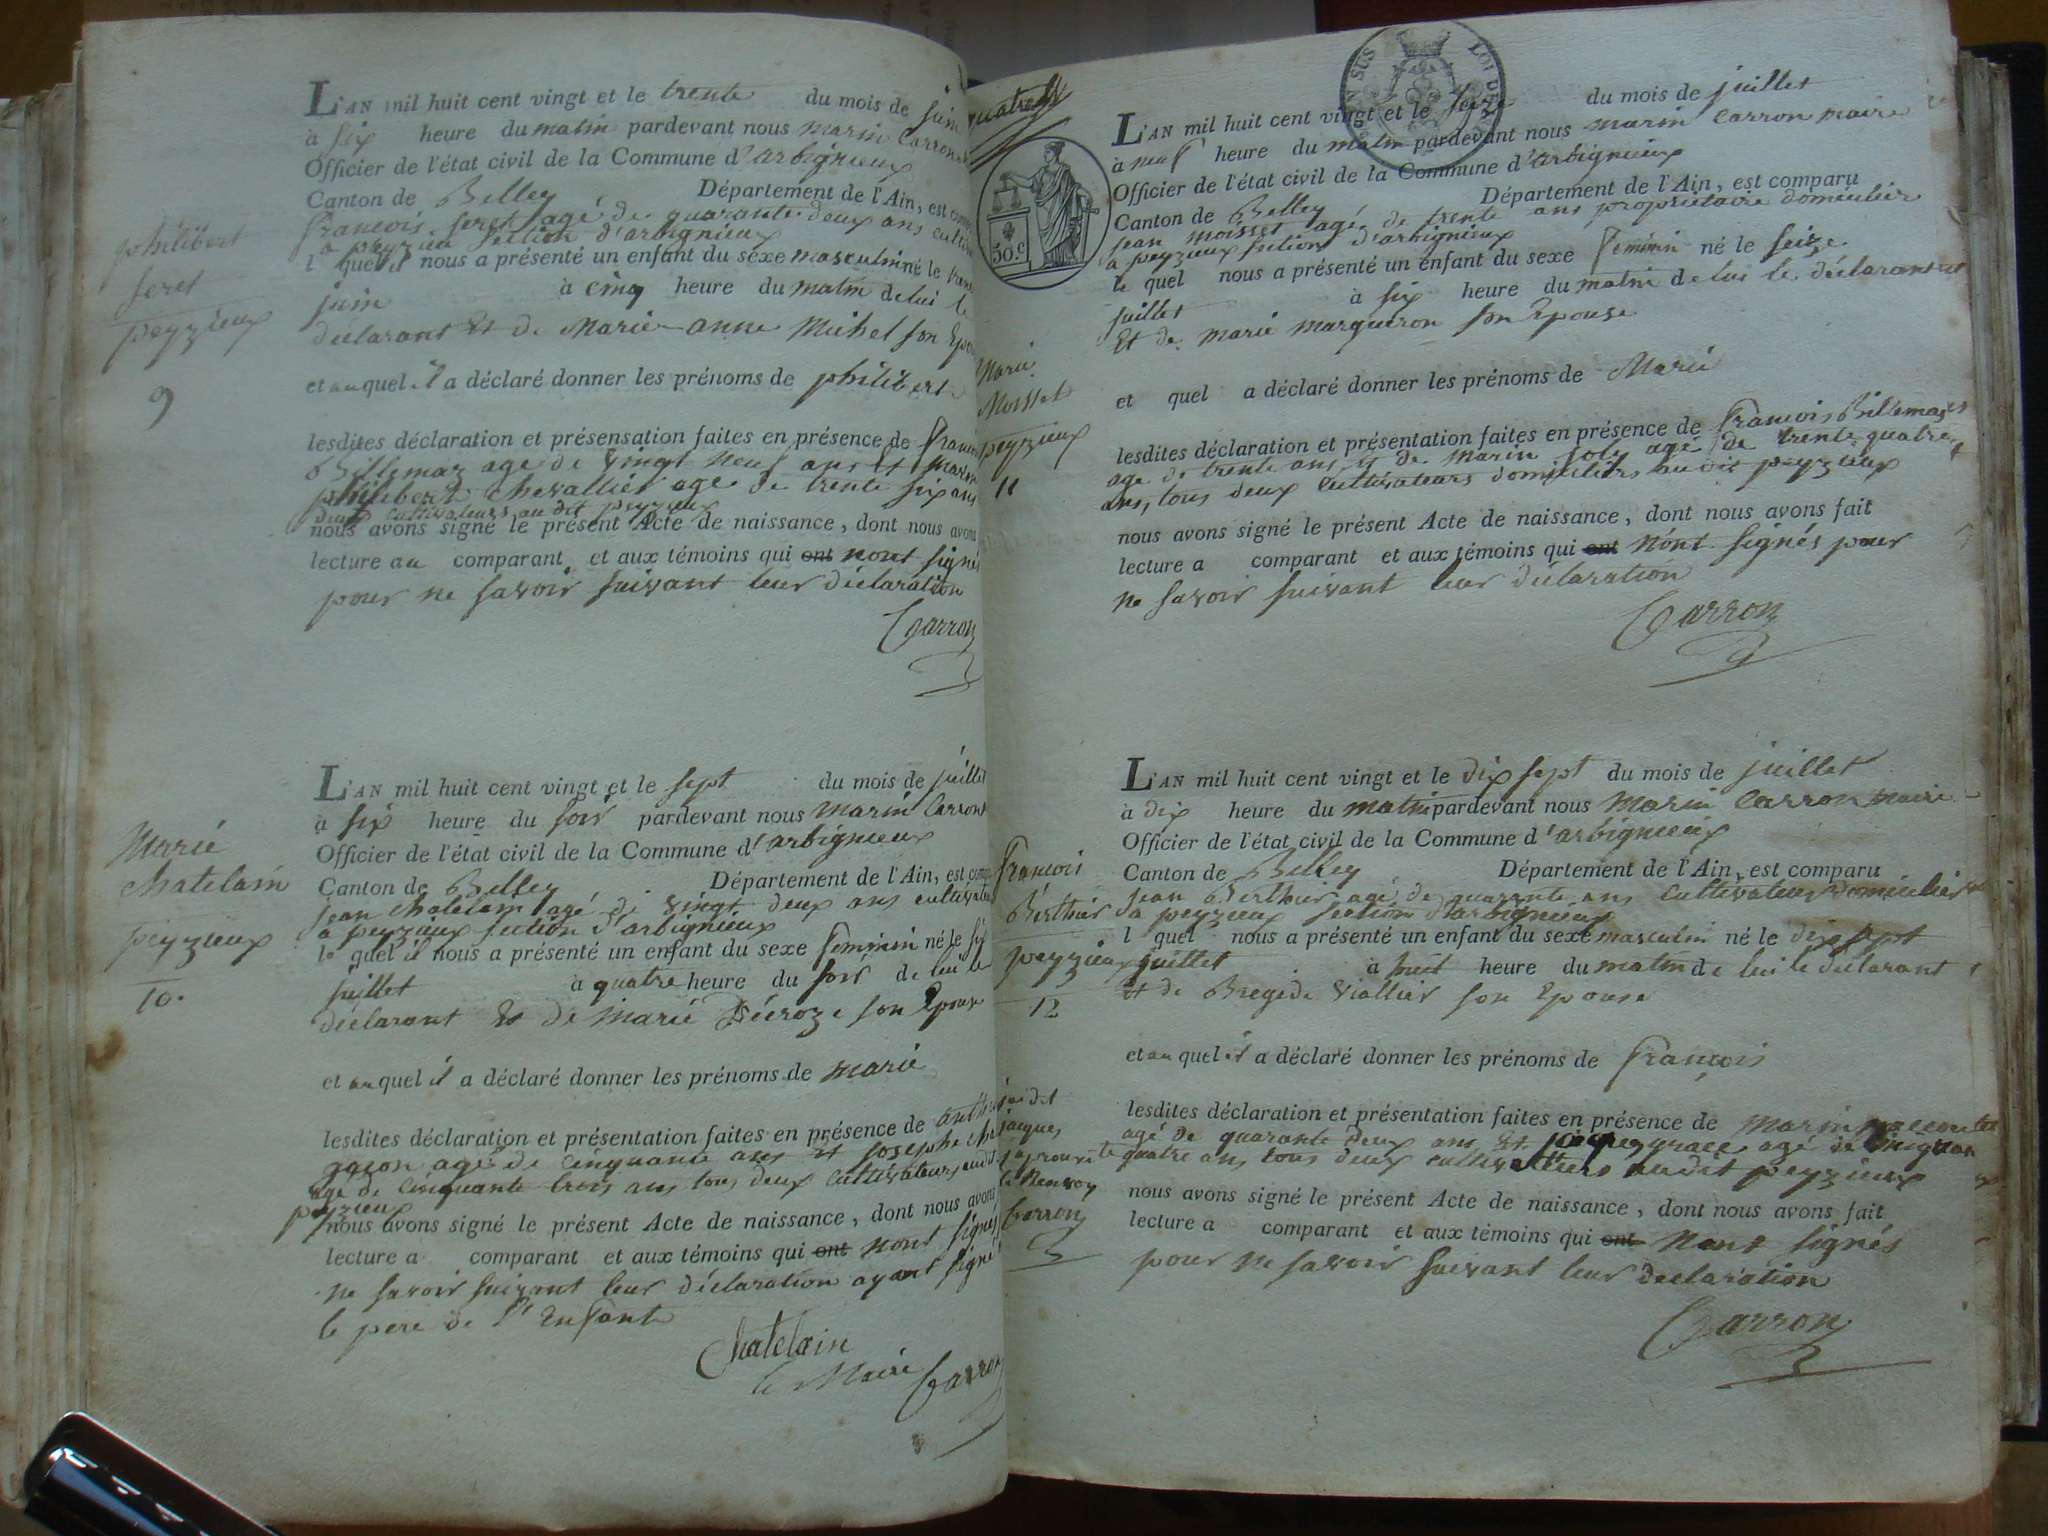 L'AN mil huit cent vingt et le trente du mois de juin
à six heure du matin pardevant nous marin Carron
Officier de l'état civil de la Commune d'arbignieux
Canton de Belley Département de l'Ain, est
francois seret agé de quarante deux ans
a peyzieu section d'arbignieux
l quel il nous a présenté un enfant du sexe masculin né le
juin à cinq heure du matin de lui le
déclarant Et de Marie-anne Michel son
et au quel il a déclaré donner les prénoms de philibert
lesdites déclaration et présensation faites en présence de
Billemaz age de vingt neuf ans Et
philibert Chevallier age de trente six ans
deux cultivateurs au dit peyzieux
nous avons signé le présent Acte de naissance, dont nous avons
lecture au comparant et aux témoins qui ont nont signé
pour ne savoir suivant leur déclaration
Carron
philibert
seret
peyzieux
9
L'AN mil huit cent vingt et le sept du mois de juillet
à six heure du soir pardevant nous marin Carron
Officier de l'état civil de la Commune d'arbignieux
Canton de Belley Département de l'Ain, est
jean chatelain agé de vingt deux ans
a peyzieux section d'arbignieux
le quel il nous a présenté un enfant du sexe feminin né le
juillet à quatre heure du soir de lui le
déclarant Et de marie Décroze son Epouse
et au quel il a déclaré donner les prénoms de marie
lesdites déclaration et présentation faites en présence de
agé de cinquante ans Et josephe
agé de cinquante trois ans tous deux cultivateurs audit
peyzieux
nous avons signé le présent Acte de naissance, dont nous avons
lecture a comparant et aux témoins qui ont nont signés
ne savoir suivant leur déclaration ayant signé
le pere de l'Enfant
Chatelain
le Maire Carron
Marie
chatelain
peyzieux
10.
50.c
L'AN mil huit cent vingt et le seize du mois de juillet
à neuf heure du matin pardevant nous marin Carron maire
Officier de l'état civil de la Commune d'arbignieux
Canton de Belley Département de l'Ain, est comparu
jean moisset agé de trente ans proprietaire domicilier
a peyzieux section d'arbignieux
le quel nous a présenté un enfant du sexe feminin né le seize
juillet à six heure du matin de lui le déclarant
Et de marie marqueron son Epouse
et quel a déclaré donner les prénoms de Marie
lesdites déclaration et présentation faites en présence de francois Billemaz
age de trente ans et de marin joly agé de trente quatre
ans, tous deux cultivateurs domiciliés audit peyzieux
nous avons signé le présent Acte de naissance, dont nous avons fait
lecture a comparant et aux témoins qui ont nont signés pour
ne savoir suivant leur déclaration
Carron
Marie
Moisset
peyzieux
11
L'AN mil huit cent vingt et le dix sept du mois de juillet
à dix heure du matin pardevant nous marin Carron maire
Officier de l'état civil de la Commune d'arbignieux
Canton de Belley Département de l'Ain, est comparu
jean Berthier agé de quarante ans cultivateur domicilier
a peyzieux section d'arbignieux
l quel nous a présenté un enfant du sexe masculin né le dix sept
juillet à huit heure du matin de lui le déclarant
Et de Bregede Viallier son Epouse
et au quel il a déclaré donner les prénoms de françois
lesdites déclaration et présentation faites en présence de marin
agé de quarante deux ans Et agé de
quatre ans tous deux cultivateurs audit peyzieux
nous avons signé le présent Acte de naissance, dont nous avons fait
lecture a comparant et aux témoins qui ont Nont signés
pour ne savoir suivant leur declaration
Carron
francois
Berthier
peyzieux
12
jacques
le Renvoy
Carron